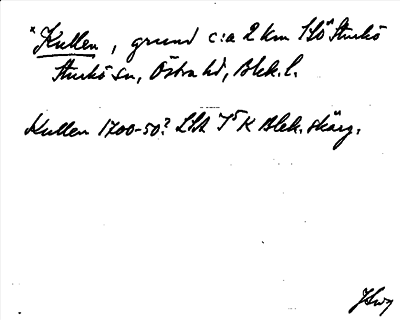 *Kullen, grund c:a 2 km SO Sturkö
Sturkö sn, Östra hd, Blek. l.
Kullen 1700-50? LSA I5 K Blek. skärg.